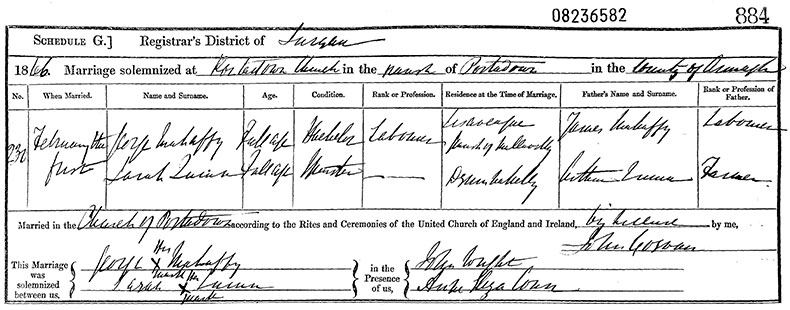 08236582
884
SCHEDULE G.] Registrar's District of Lurgan
1866. Marriage solemnized at Portadown Church in the parish of Portadown in the County of Armagh
No. When Married. Name and Surname. Age. Condition. Rank or Profession. Residence at the Time of Marriage. Father's Name and Surname. Rank or Profession of Father.
230 February the first George Mahaffy Full age Bachelor Labourer Parish of James Mahaffy Labourer
Sarah Quinn Full age Spinster — Drumnakelly Arthur Quinn Farmer
Married in the Church of Portadown according to the Rites and Ceremonies of the United Church of England and Ireland, by license by me,
This Marriage was solemnized between us,
George His X mark Mahaffy
Sarah Her X mark Quinn
in the Presence of us,
John Wright
Anne Eliza